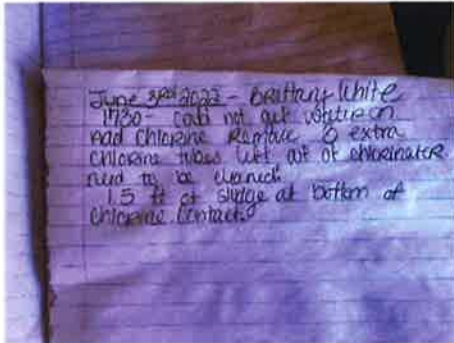 June 3rd 2022 - Brittany White
1730 - could not get water on
Add Chlorine Remove 6 extra
chlorine tubes left out of chlorinator
need to be cleaned.
1.5 ft of sludge at bottom of
Chlorine Contact.